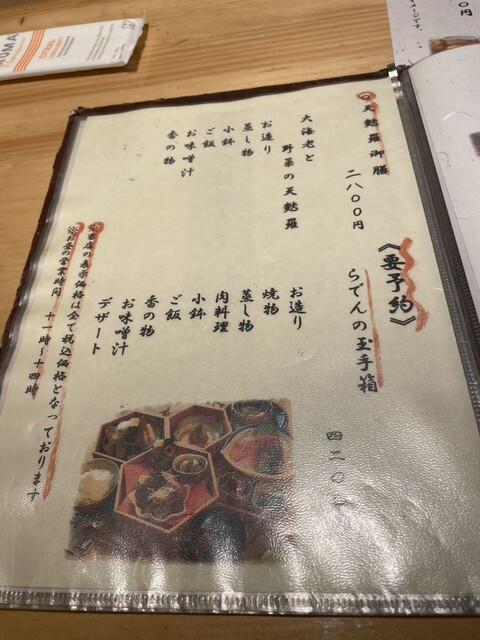 ○天麩羅御膳
二八〇〇円
大海老と
野菜の天麩羅
お造り
蒸し物
小鉢
ご飯
お味噌汁
香の物
《要予約》
らでんの玉手箱
四二〇
お造り
焼物
蒸し物
肉料理
小鉢
ご飯
香の物
お味噌汁
デザート
※当店の表示価格は全て税込価格となっております
※お昼の営業時間 十一時〜十四時